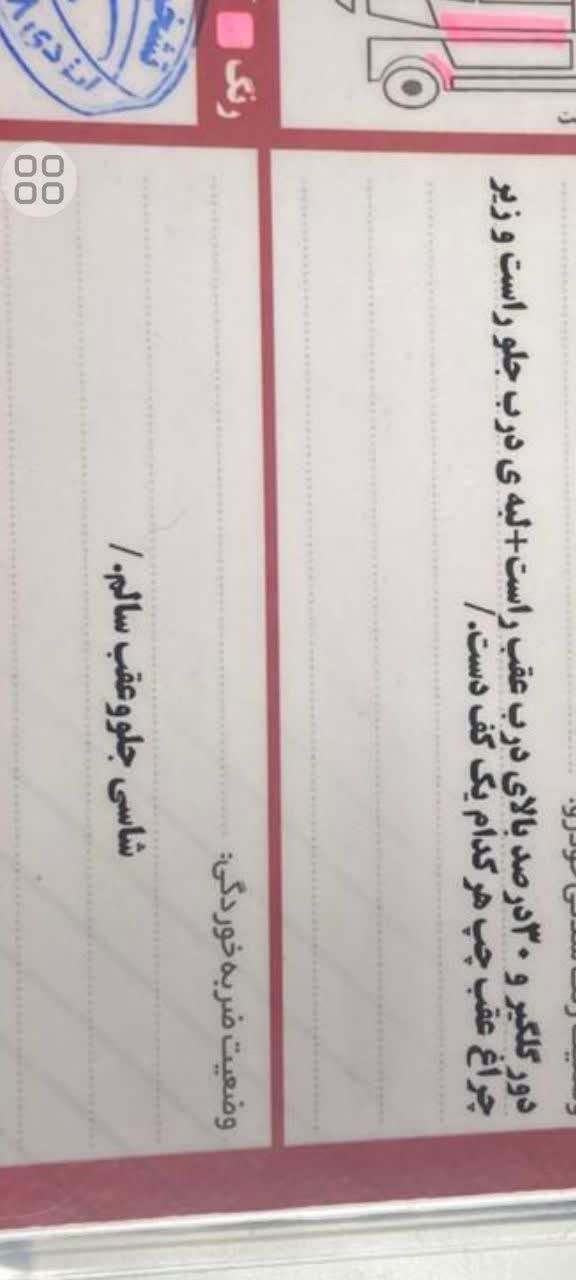 رنگ
وضعیت رنگ شدگی خودرو:
دور گلگیر و ۳۰درصد بالای درب عقب راست+لبه ی درب جلو راست و زیر
چراغ عقب چپ هر کدام یک کف دست./
وضعیت ضربه خوردگی:
شاسی جلو و عقب سالم./